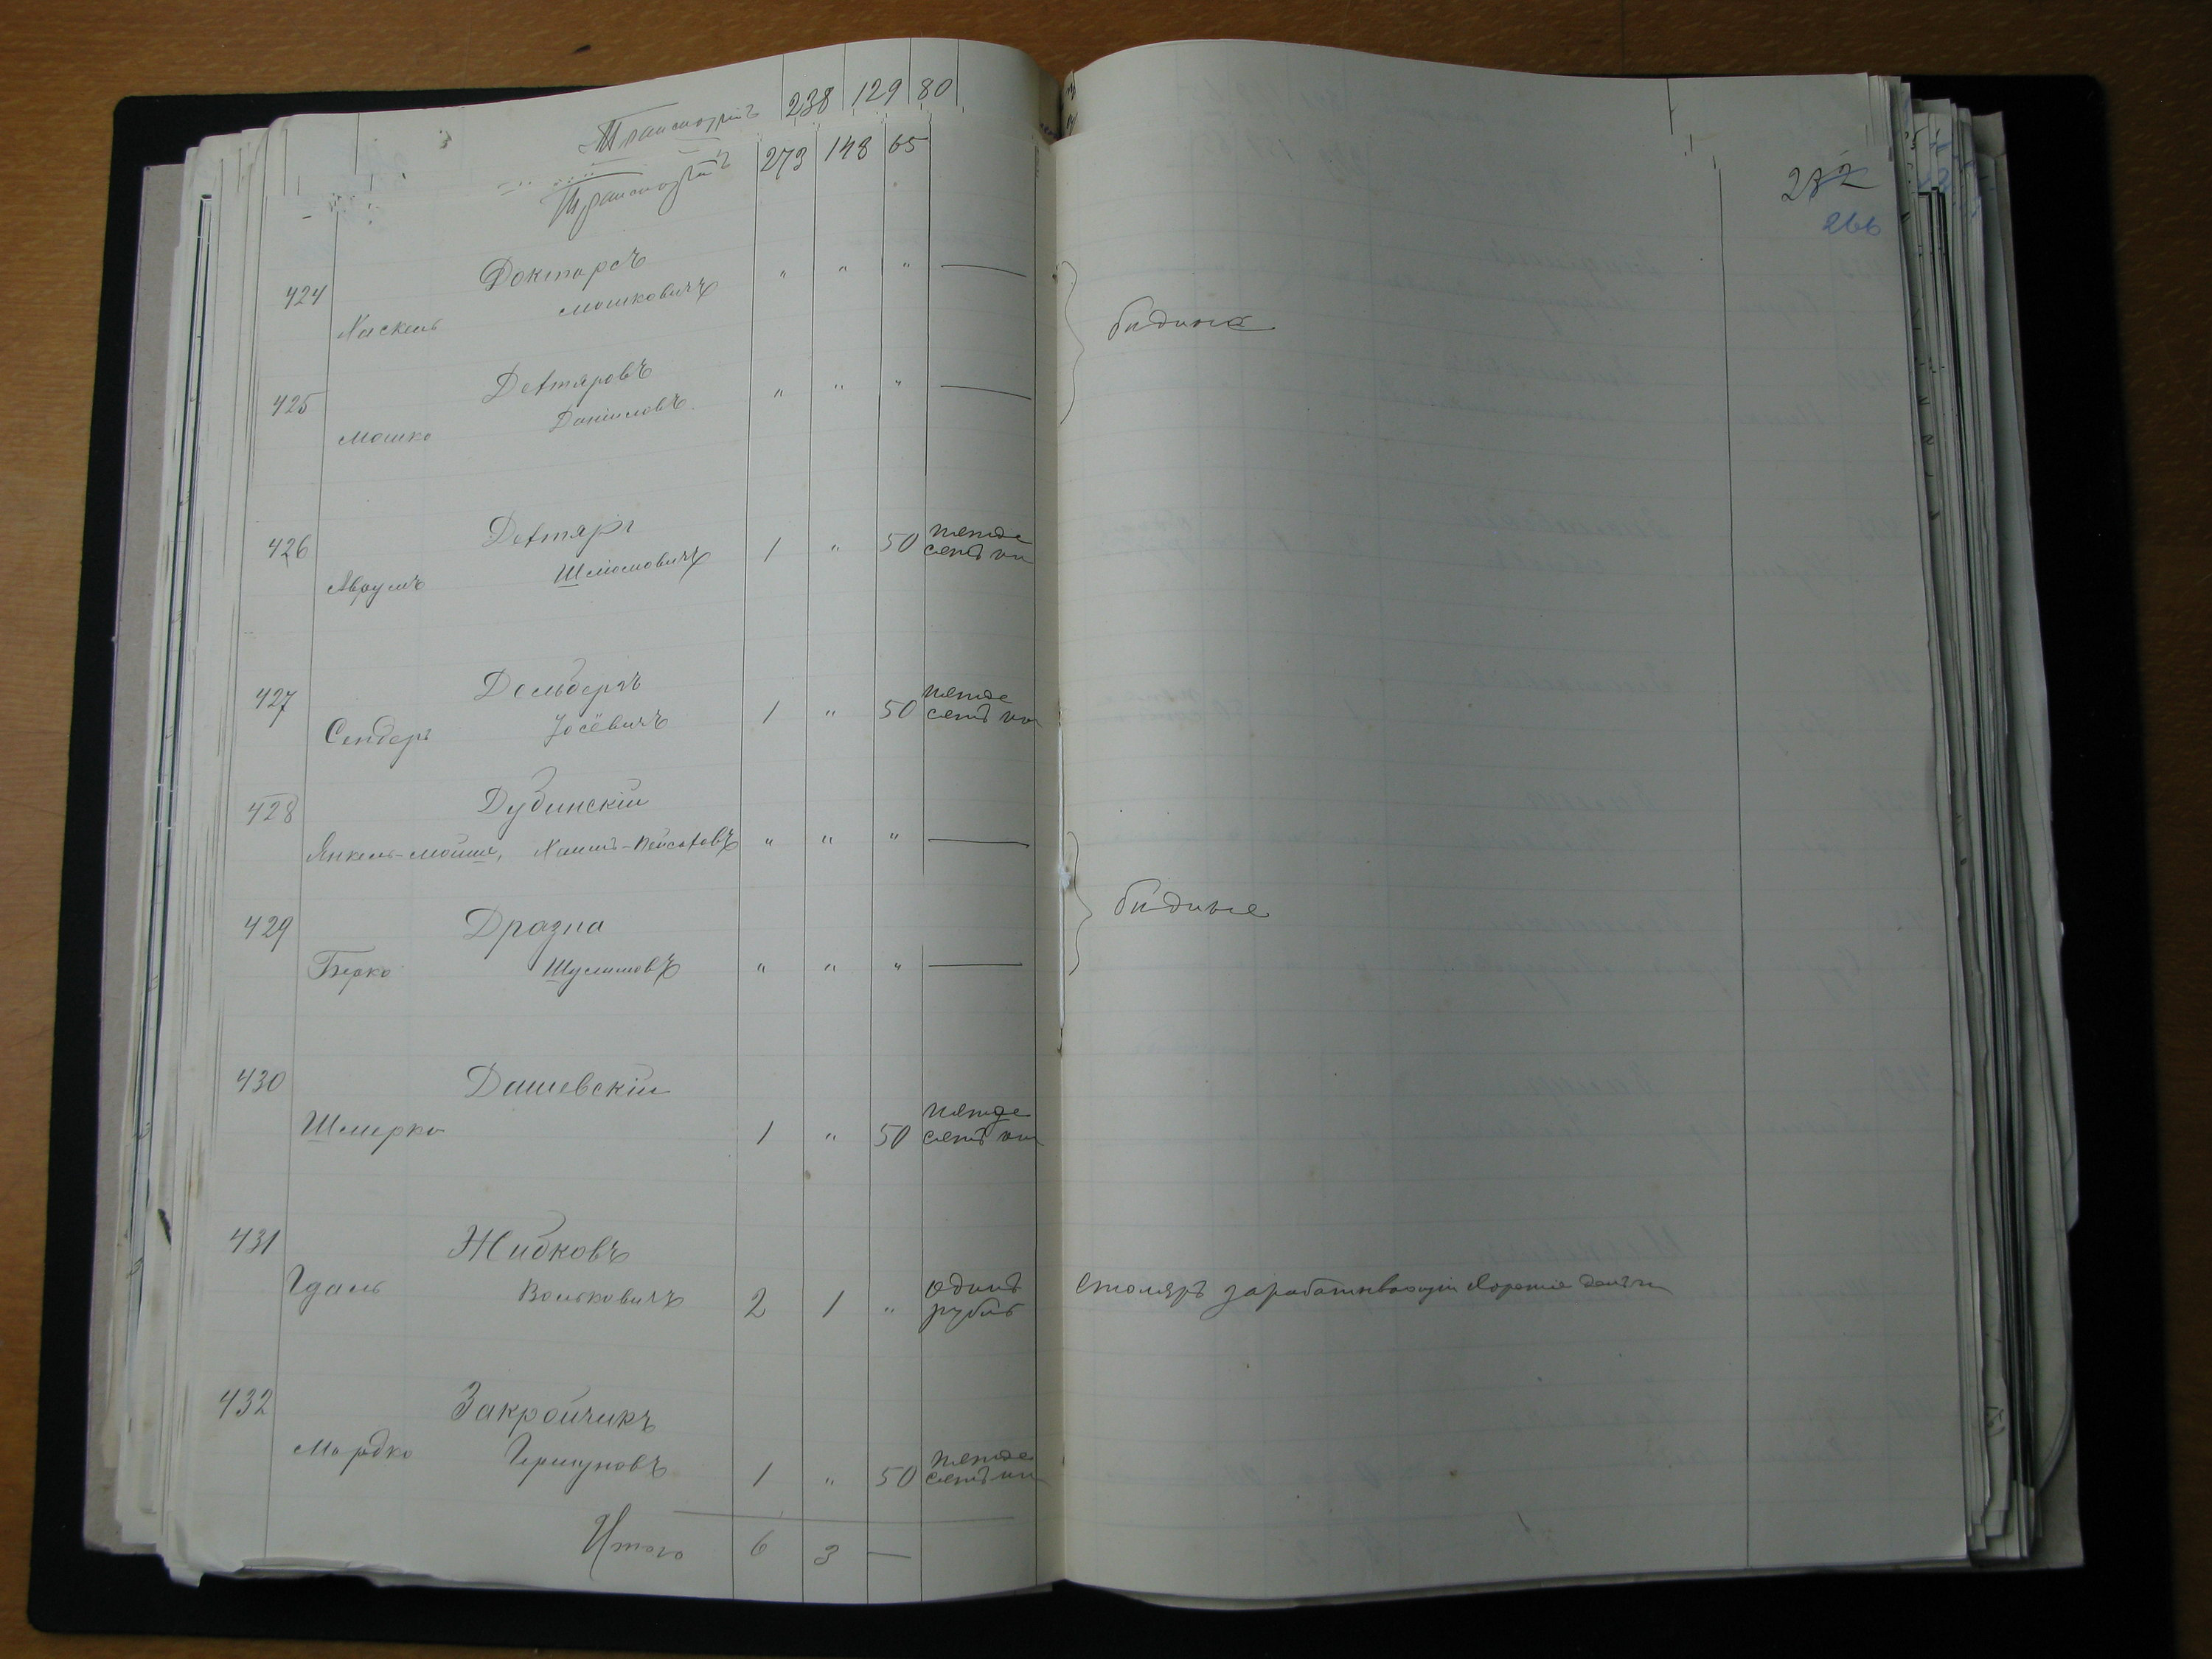 Транспортъ 238 129 80
Транспортъ 273 148 65
272
266
424 Докторсъ " " " —
Хаскель Мошковичъ
бѣдные
425 Дегтяровъ " " " —
Мошко Даниловъ
426 Дегтярь 1 " 50 пятьде
Аврумъ Шлиомовичъ сятъ коп
427 Дольбергъ 1 " 50 пятьде
Сендеръ Іосёвичъ сятъ коп
428 Дубинскій
Янкель-Мойше, Хаимъ-Пейсаховъ " " " —
бѣдные
429 Дразна
Берко Шулимовъ " " " —
430 Дашевскій
Шмерко 1 " 50 пятьде
сятъ коп
431 Жидковъ
Гдаль Вольковичъ 2 1 " одинъ
рубль
Столяръ зарабатывающій хорошіе деньги
432 Закройчикъ
Мордко Гершуновъ 1 " 50 пятьде
сятъ коп
Итого 6 3 —